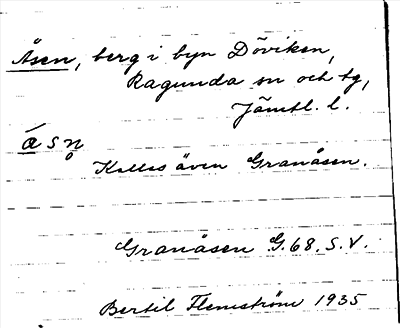 Åsen, berg i byn Döviken,
Ragunda sn och tg,
Jämtl. l.
å s n̥
Kallas även Granåsen.
Granåsen G.68.S.V.
Bertil Flemström 1935